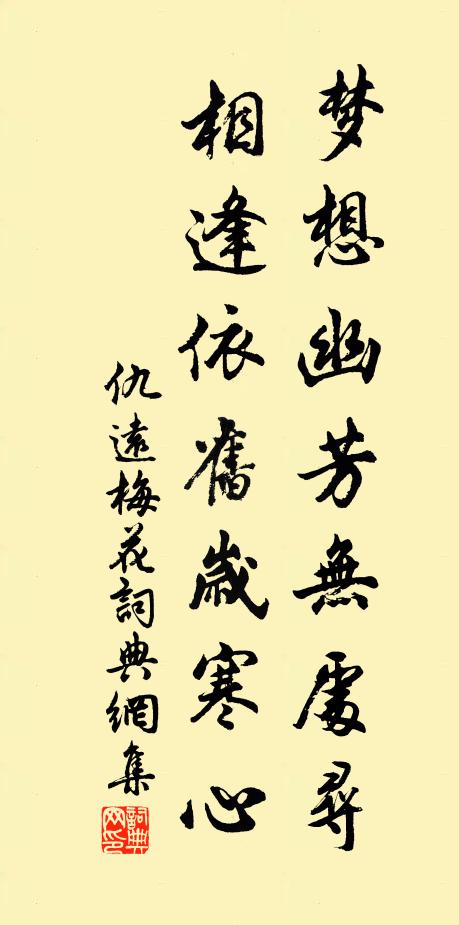 梦想幽芳無處尋
相逢依舊歲寒心
仇遠梅花詞典網集
詞典网印